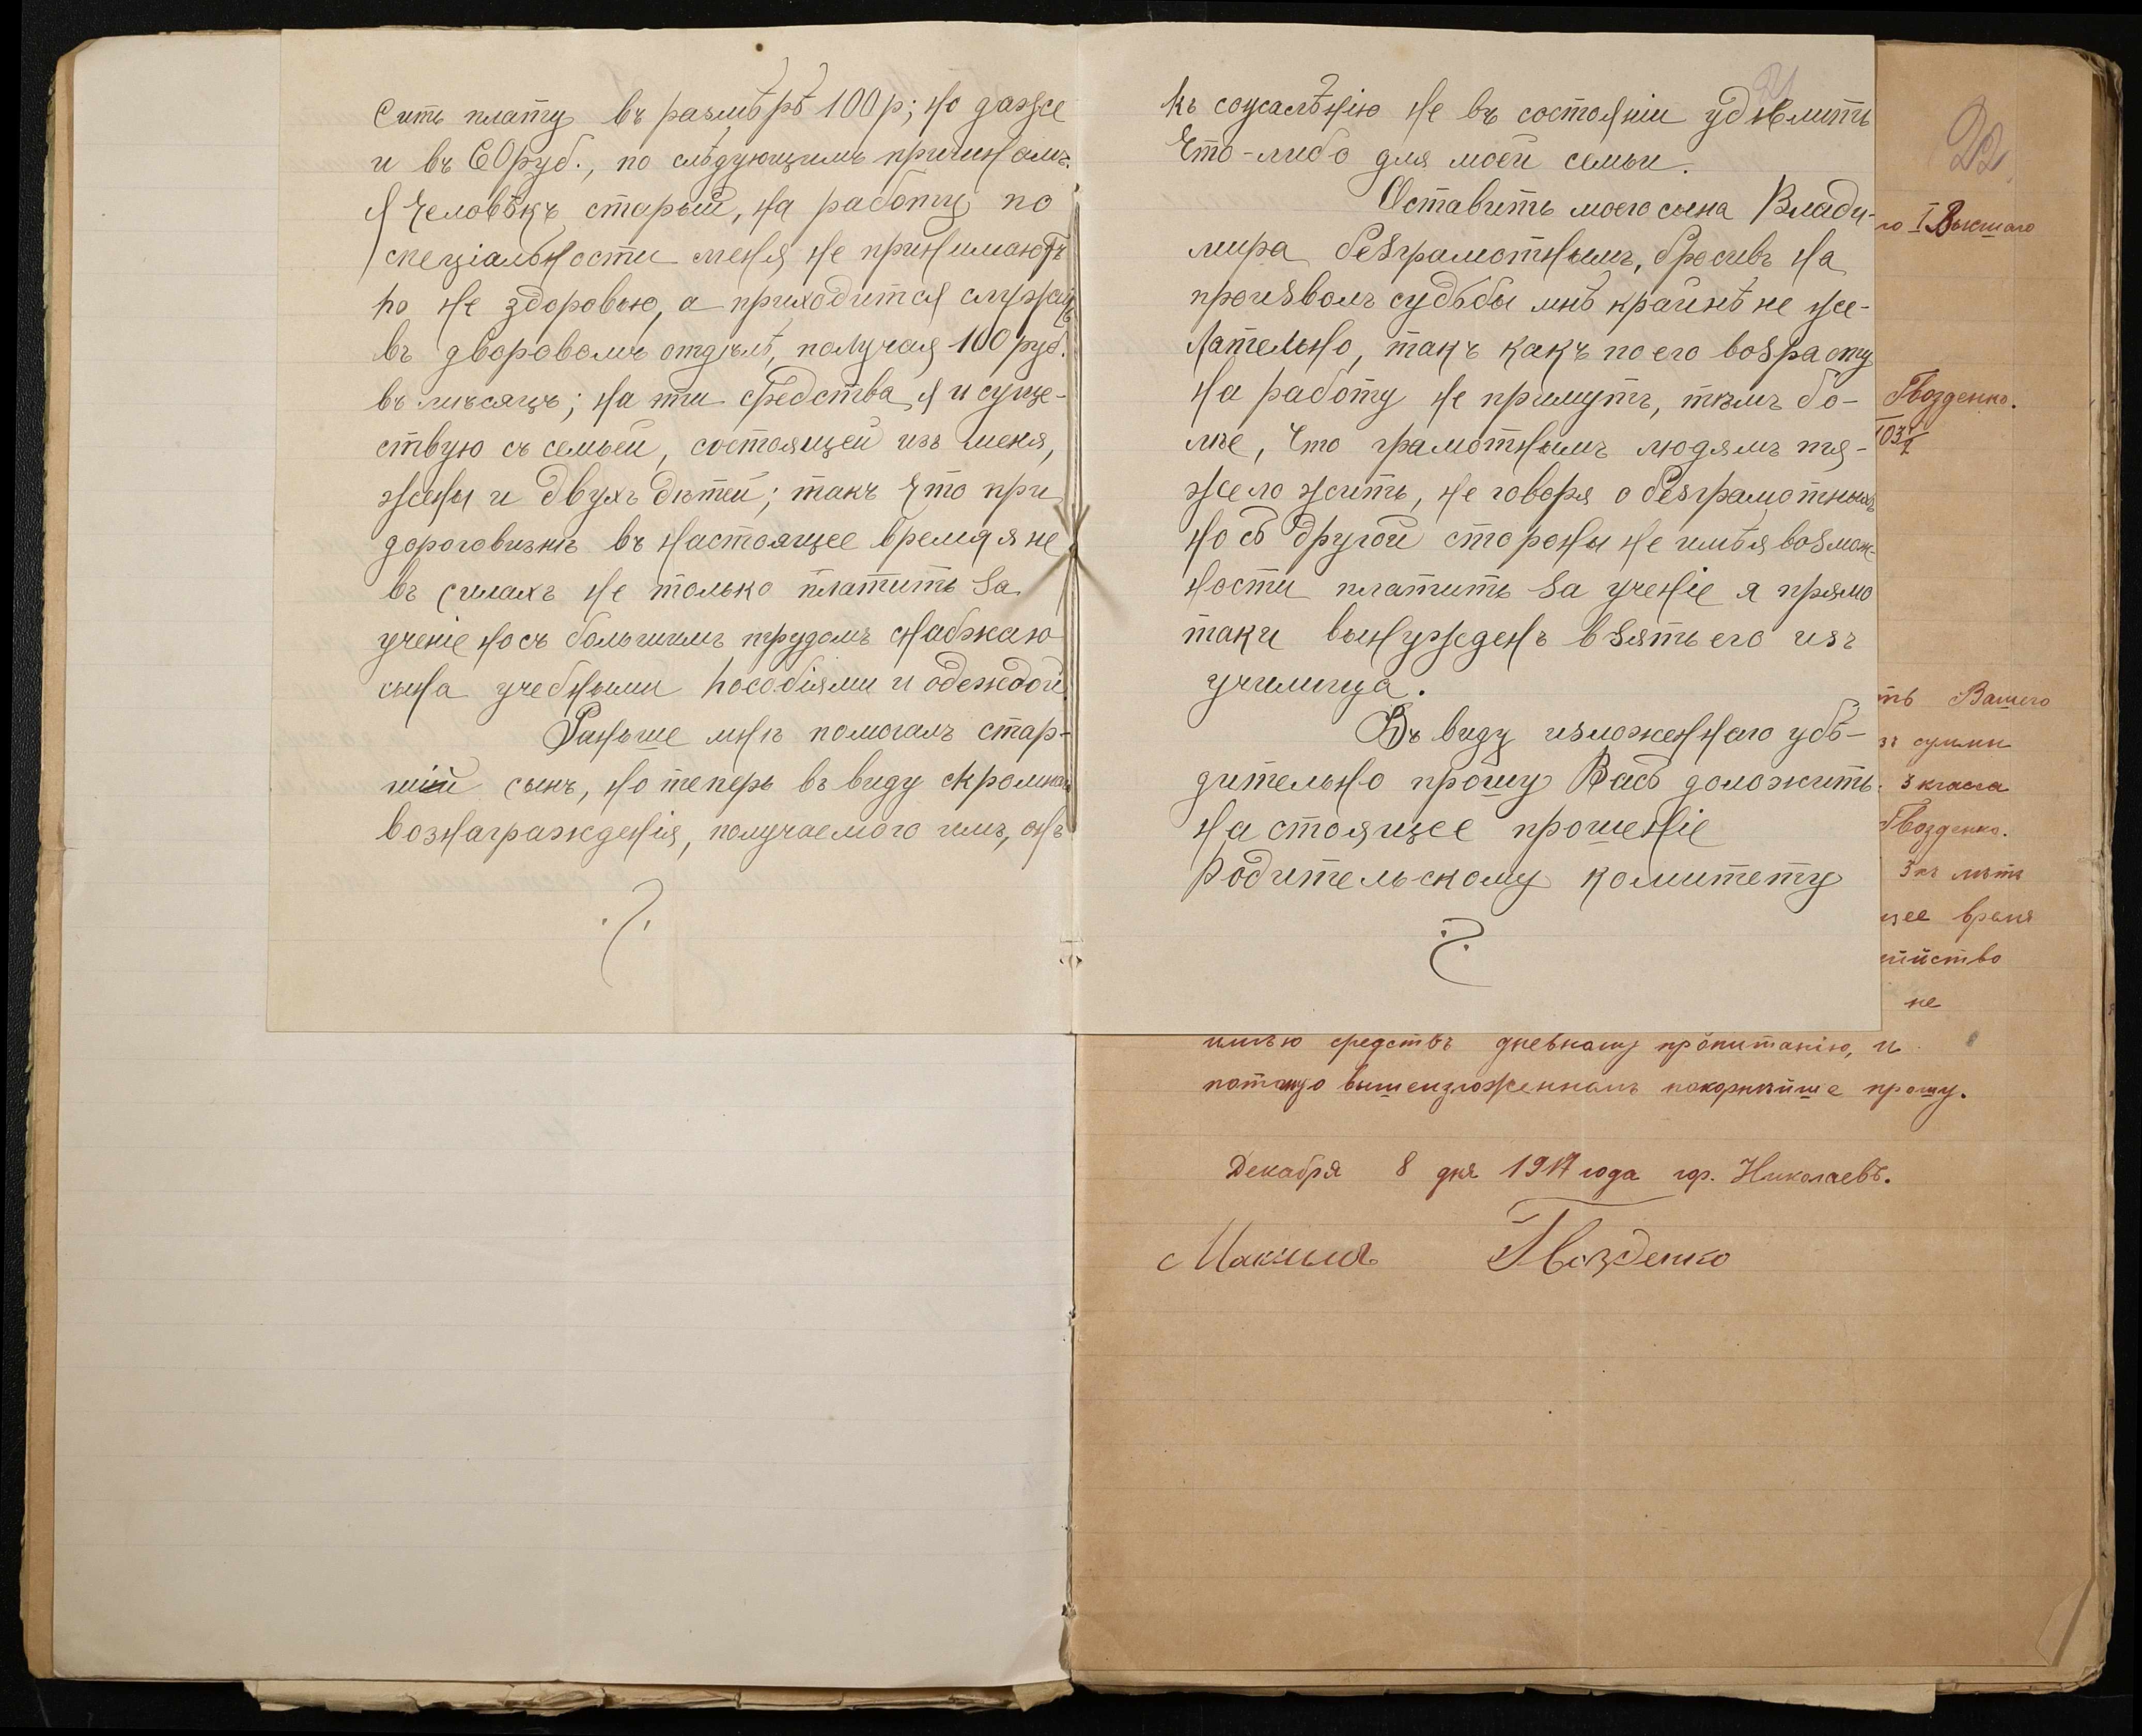 сить плату въ размѣрѣ 100 р; но даже
и въ 60 руб., по слѣдующимъ причинамъ.
Я человѣкъ старый, на работу по
спеціальности меня не принимаютъ
по не здоровью, а приходится служить
въ дворовомъ отдѣлѣ, получая 100 руб.
въ мѣсяцъ; на эти средства я и суще-
ствую съ семьей, состоящей изъ меня,
жены и двухъ дѣтей; такъ что при
дороговизнѣ въ настоящее время я не
въ силахъ не только платить за
ученіе но съ большимъ трудомъ снабжаю
сына учебными пособіями и одеждой.
Раньше мнѣ помогалъ стар-
шій сынъ, но теперь въ виду скромнаго
вознагражденія, получаемого имъ, онъ
./.
21
къ сожалѣнію не въ состояніи удѣлить
что-либо для моей семьи.
Оставить моего сына Влади-
мира безграмотнымъ, бросивъ на
произволъ судьбы мнѣ крайнѣ не же-
лательно, такъ какъ по его возрасту
на работу не примутъ, тѣмъ бо-
лѣе, что грамотнымъ людямъ тя-
жело жить, не говоря о безграмотныхъ
но съ другой стороны не имѣя возмож-
ности платить за ученіе я прямо
таки вынужденъ взять его изъ
училища.
Въ виду изложеннаго убѣ-
дительно прошу Васъ доложить
настоящее прошеніе
родительскому комитету
./.
22
го I Высшаго
Гвозденко.
ть Вашего
зъ суммы
3 класса
Гвозденко.
3хъ лѣтъ
щее время
ейство
не
имѣю средствъ дневному пропитанію, и
потому вышеизложенномъ покорнѣйше прошу.
Декабря 8 дня 1917 года гор. Николаевъ.
Максимъ Гвозденко